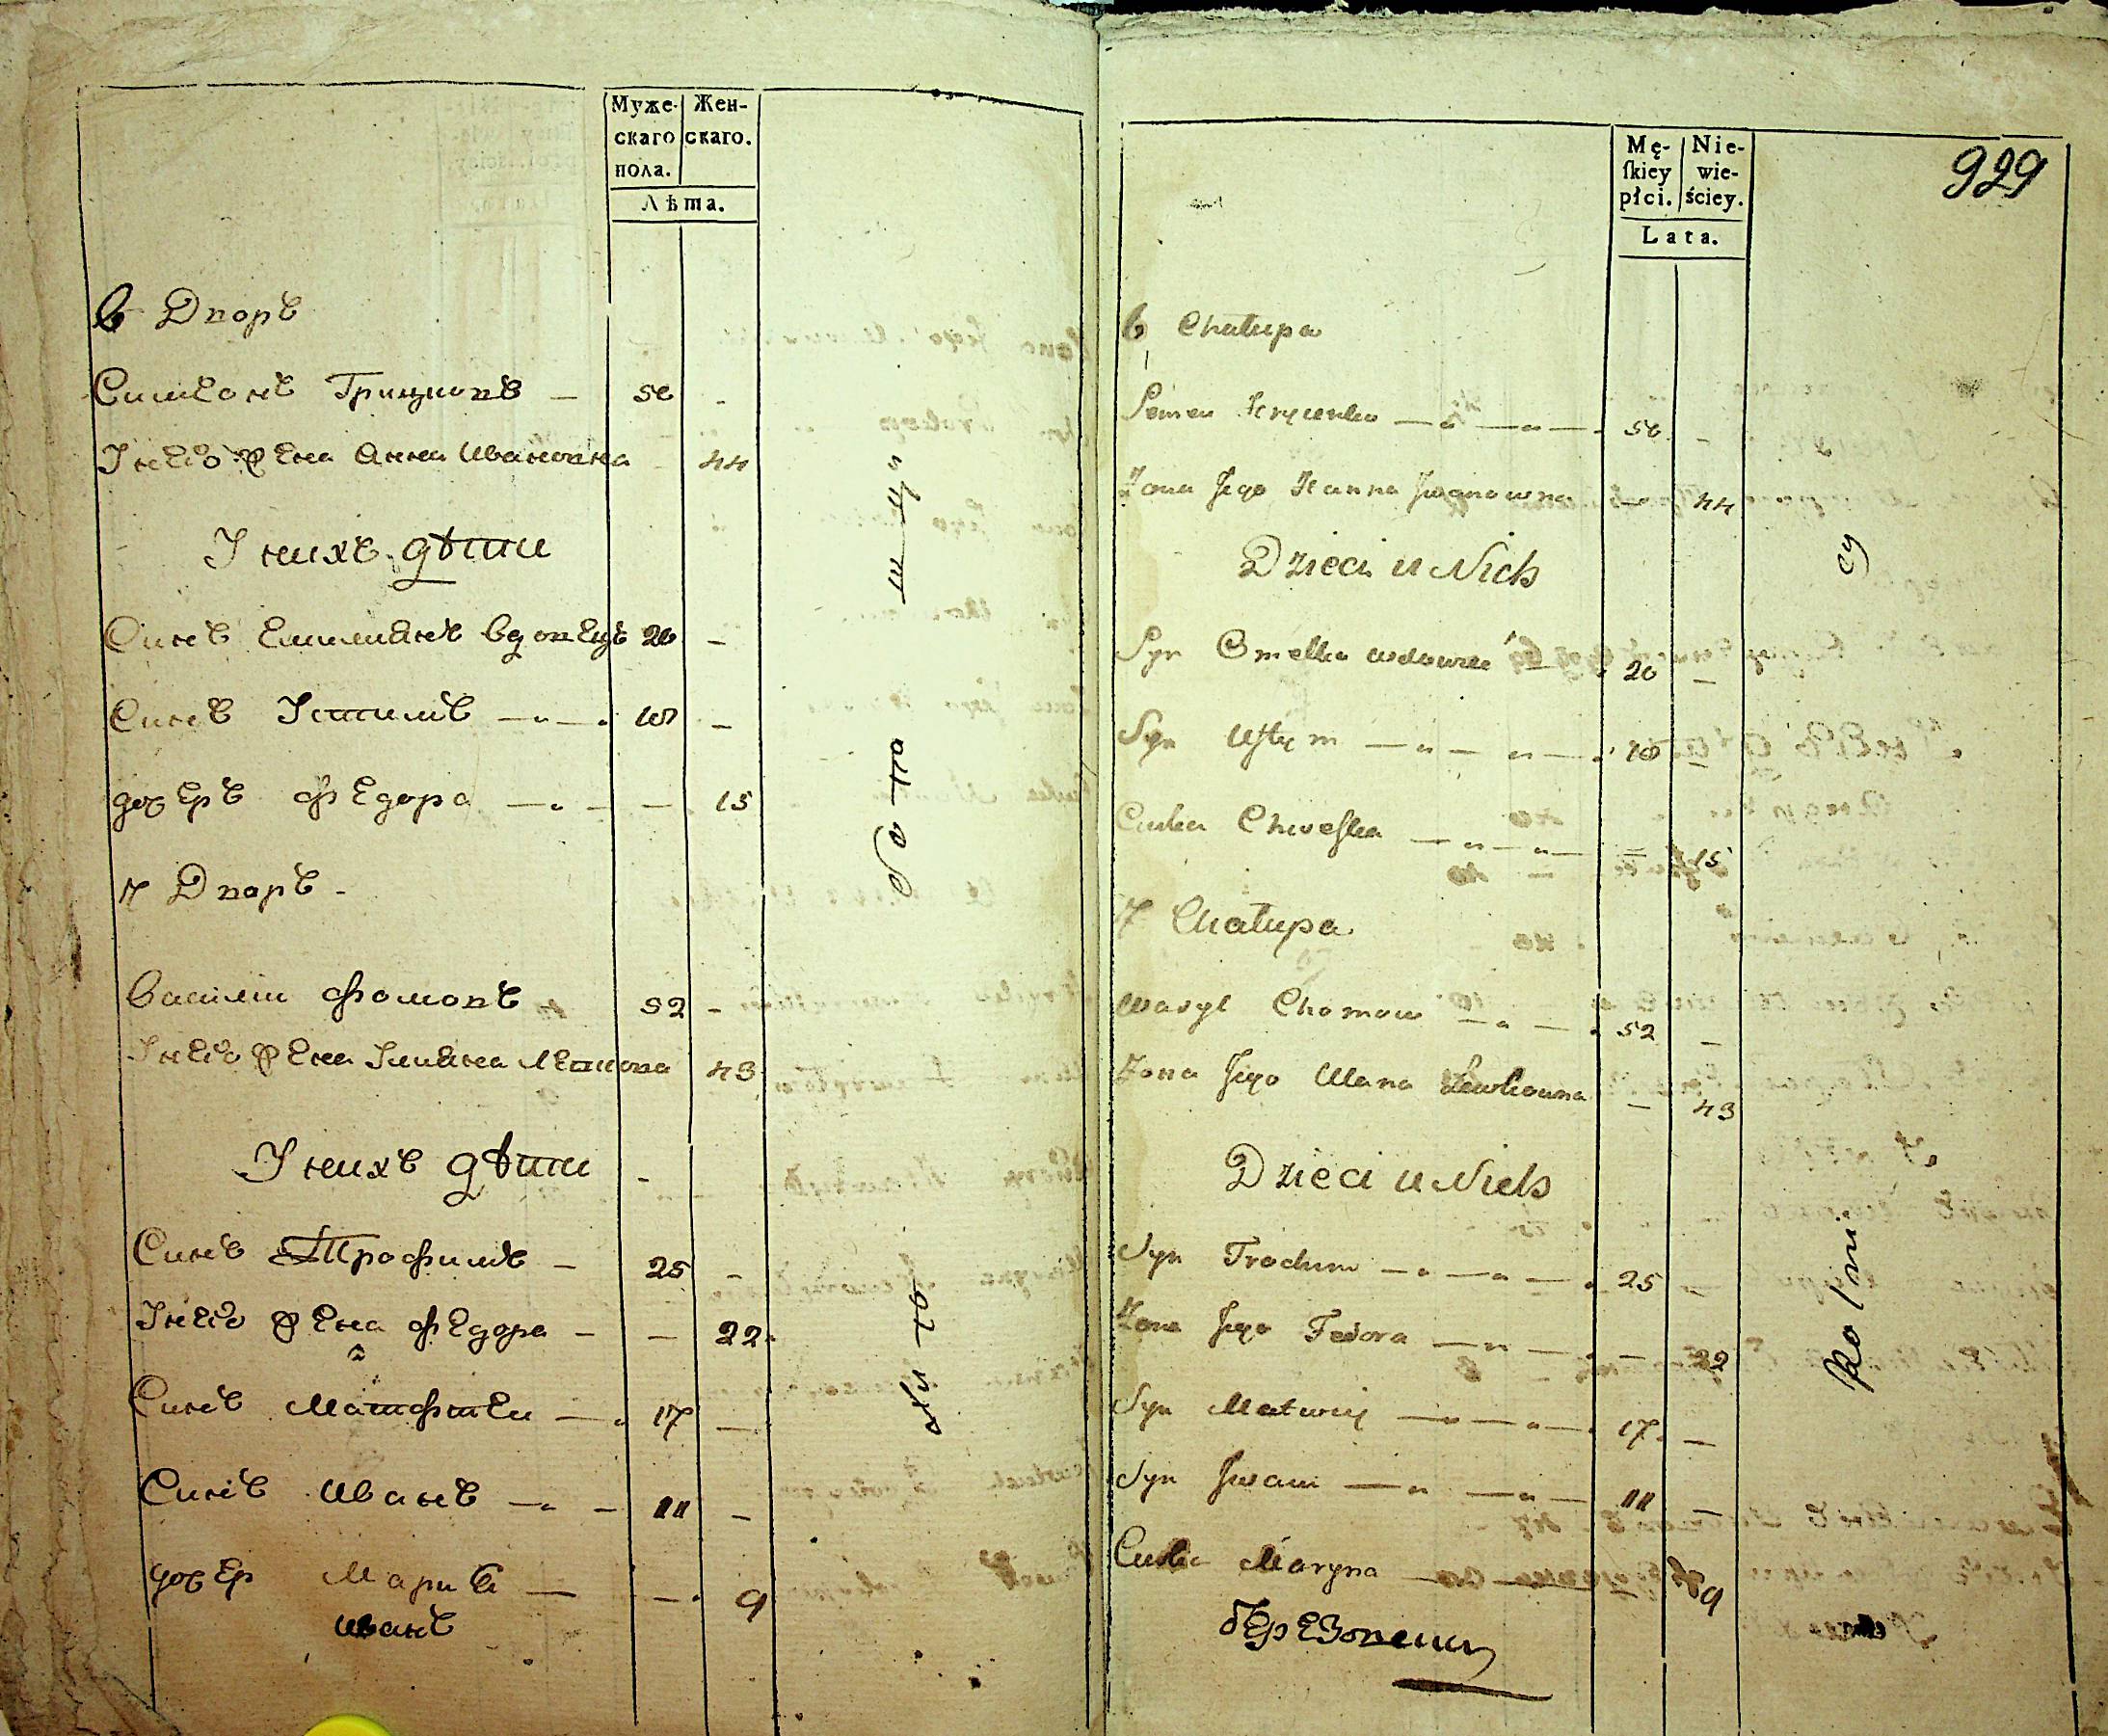 Муже-
скаго
пола.
Жен-
скаго.
Лѣта.
6 Дворъ
Симеонъ Грицковъ — 56 -
У него жена Анна Иванова - 44
У нихъ дѣти
Синъ Емилианъ вдовецъ 20 -
Синъ Устимъ — 10 -
дочеръ Федора — - 15
7 Дворъ -
Василіи Фомовъ 52 -
У него жена Улияна 43
У нихъ дѣти -
Синъ Трофимъ - 25 -
У него жена Федора - - 22
Синъ Матфеи — 17 -
Синъ Иванъ — 11 -
дочер Мария — - 9
Иванъ
Mę-
ſkiey
płci.
Nie-
wie-
ściey.
Lata.
929
6 Chałupa
Semen Hrycenko — 56 -
Żona Jego Hanna Jwanowna - 44
Dzieci u Nich
Syn Omelko wdowiec 20 -
Syn Uſtym — 10 -
Curka Chweſka — - 15
7 Chałupa
Wasyl Chomow — 52 -
Żona Jego Ulana Lewkowna - 43
Dzieci u Nich
Syn Trochim — 25 -
Żona Jego Fedora — - 22
Syn Matwiy — 17 -
Syn Jwan — 11 -
Curka Maryna — 9
rolni
cy